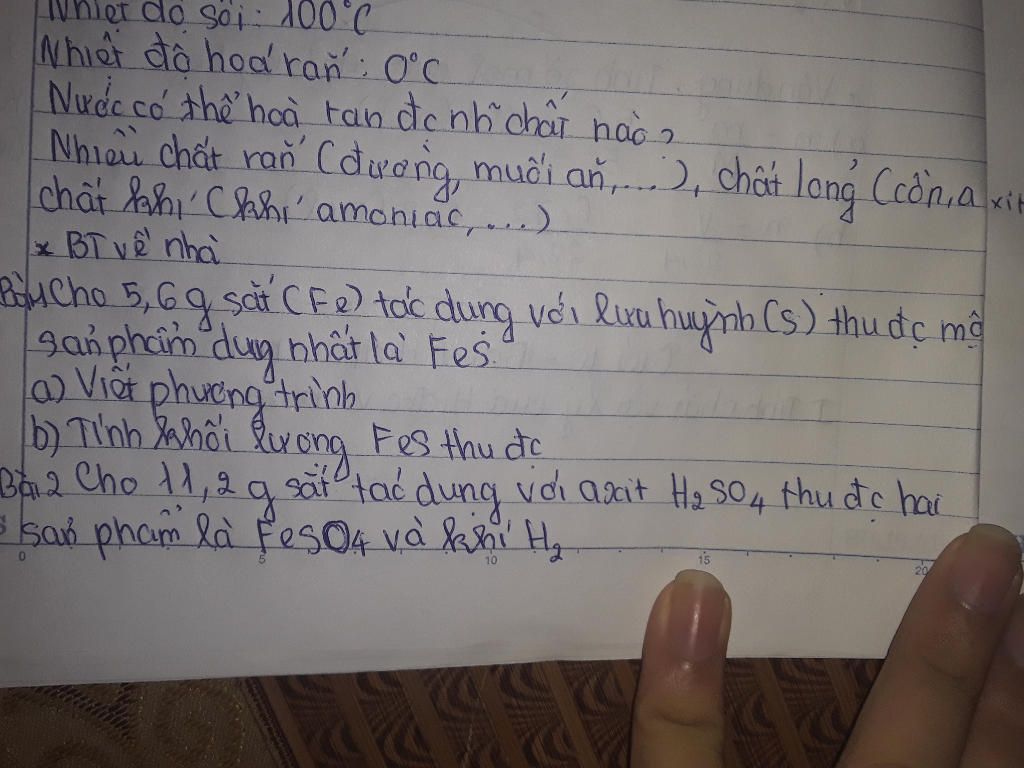 Nhiệt độ sôi: 100°C
Nhiệt độ hoá rắn: 0°C
Nước có thể hoà ran đc nh~ chất nào?
Nhiều chất rắn (đường, muối ăn,...), chất lỏng (cồn, axit
chất khí (khí amoniac,...)
* BT về nhà
Bài 1 Cho 5,6g sắt (Fe) tác dụng với lưu huỳnh (S) thu đc mộ
sản phẩm duy nhất là FeS.
a) Viết phương trình
b) Tính khối lượng FeS thu đc
Bài 2 Cho 11,2g sắt tác dụng với axit H₂SO₄ thu đc hai
sản phẩm là FeSO4 và khí H₂
0 5 10 15 20